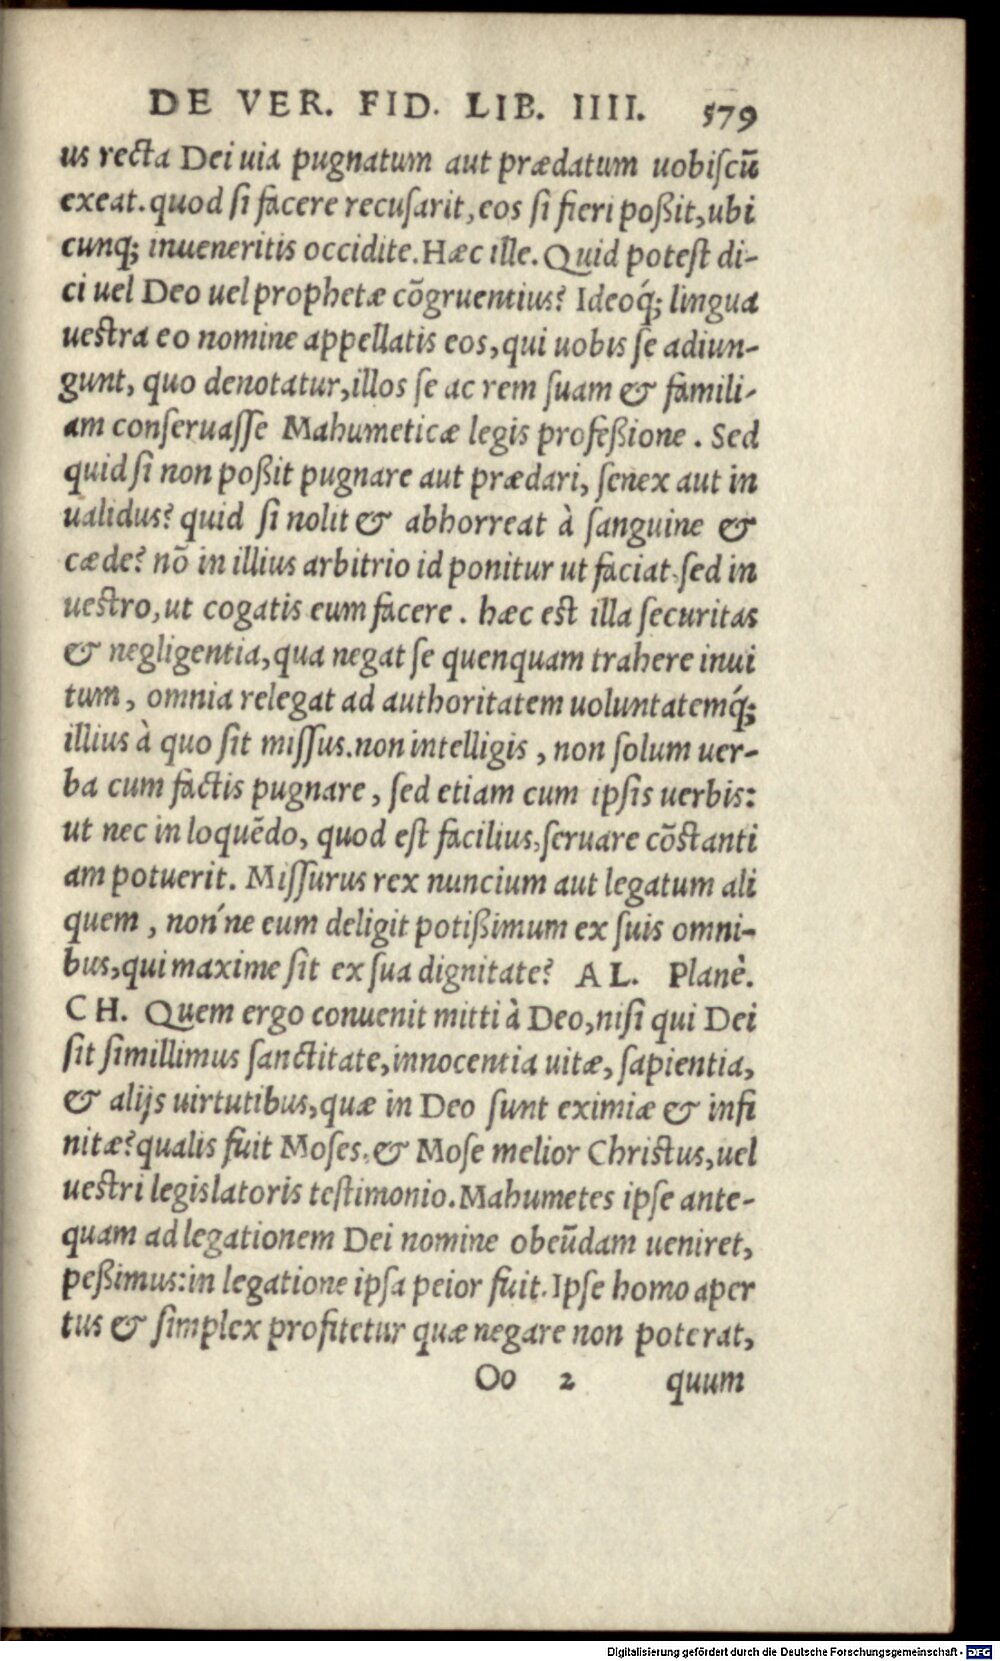 DE VER. FID. LIB. IIII. 579
us recta Dei uia pugnatum aut prædatum uobiscū
exeat. quod si facere recusarit, eos si fieri poßit, ubi
cunq; inueneritis occidite. Hæc ille. Quid potest di-
ci uel Deo uel prophetæ cōgruentius? Ideoq́; lingua
uestra eo nomine appellatis eos, qui uobis se adiun-
gunt, quo denotatur, illos se ac rem suam & famili-
am conseruasse Mahumeticæ legis profeßione. Sed
quid si non poßit pugnare aut prædari, senex aut in
ualidus? quid si nolit & abhorreat à sanguine &
cæde? nō in illius arbitrio id ponitur ut faciat, sed in
uestro, ut cogatis eum facere. hæc est illa securitas
& negligentia, qua negat se quenquam trahere inui
tum, omnia relegat ad authoritatem uoluntatemq́;
illius à quo sit missus. non intelligis, non solum uer-
ba cum factis pugnare, sed etiam cum ipsis uerbis:
ut nec in loquēdo, quod est facilius, seruare cōstanti
am potuerit. Missurus rex nuncium aut legatum ali
quem, non´ne eum deligit potißimum ex suis omni-
bus, qui maxime sit ex sua dignitate? AL. Planè.
CH. Quem ergo conuenit mitti à Deo, nisi qui Dei
sit simillimus sanctitate, innocentia uitæ, sapientia,
& alijs uirtutibus, quæ in Deo sunt eximiæ & infi
nitæ? qualis fuit Moses, & Mose melior Christus, uel
uestri legislatoris testimonio. Mahumetes ipse ante-
quam ad legationem Dei nomine obeūdam ueniret,
peßimus: in legatione ipsa peior fuit. Ipse homo aper
tus & simplex profitetur quæ negare non poterat,
Oo 2 quum
Digitalisierung gefördert durch die Deutsche Forschungsgemeinschaft - DFG